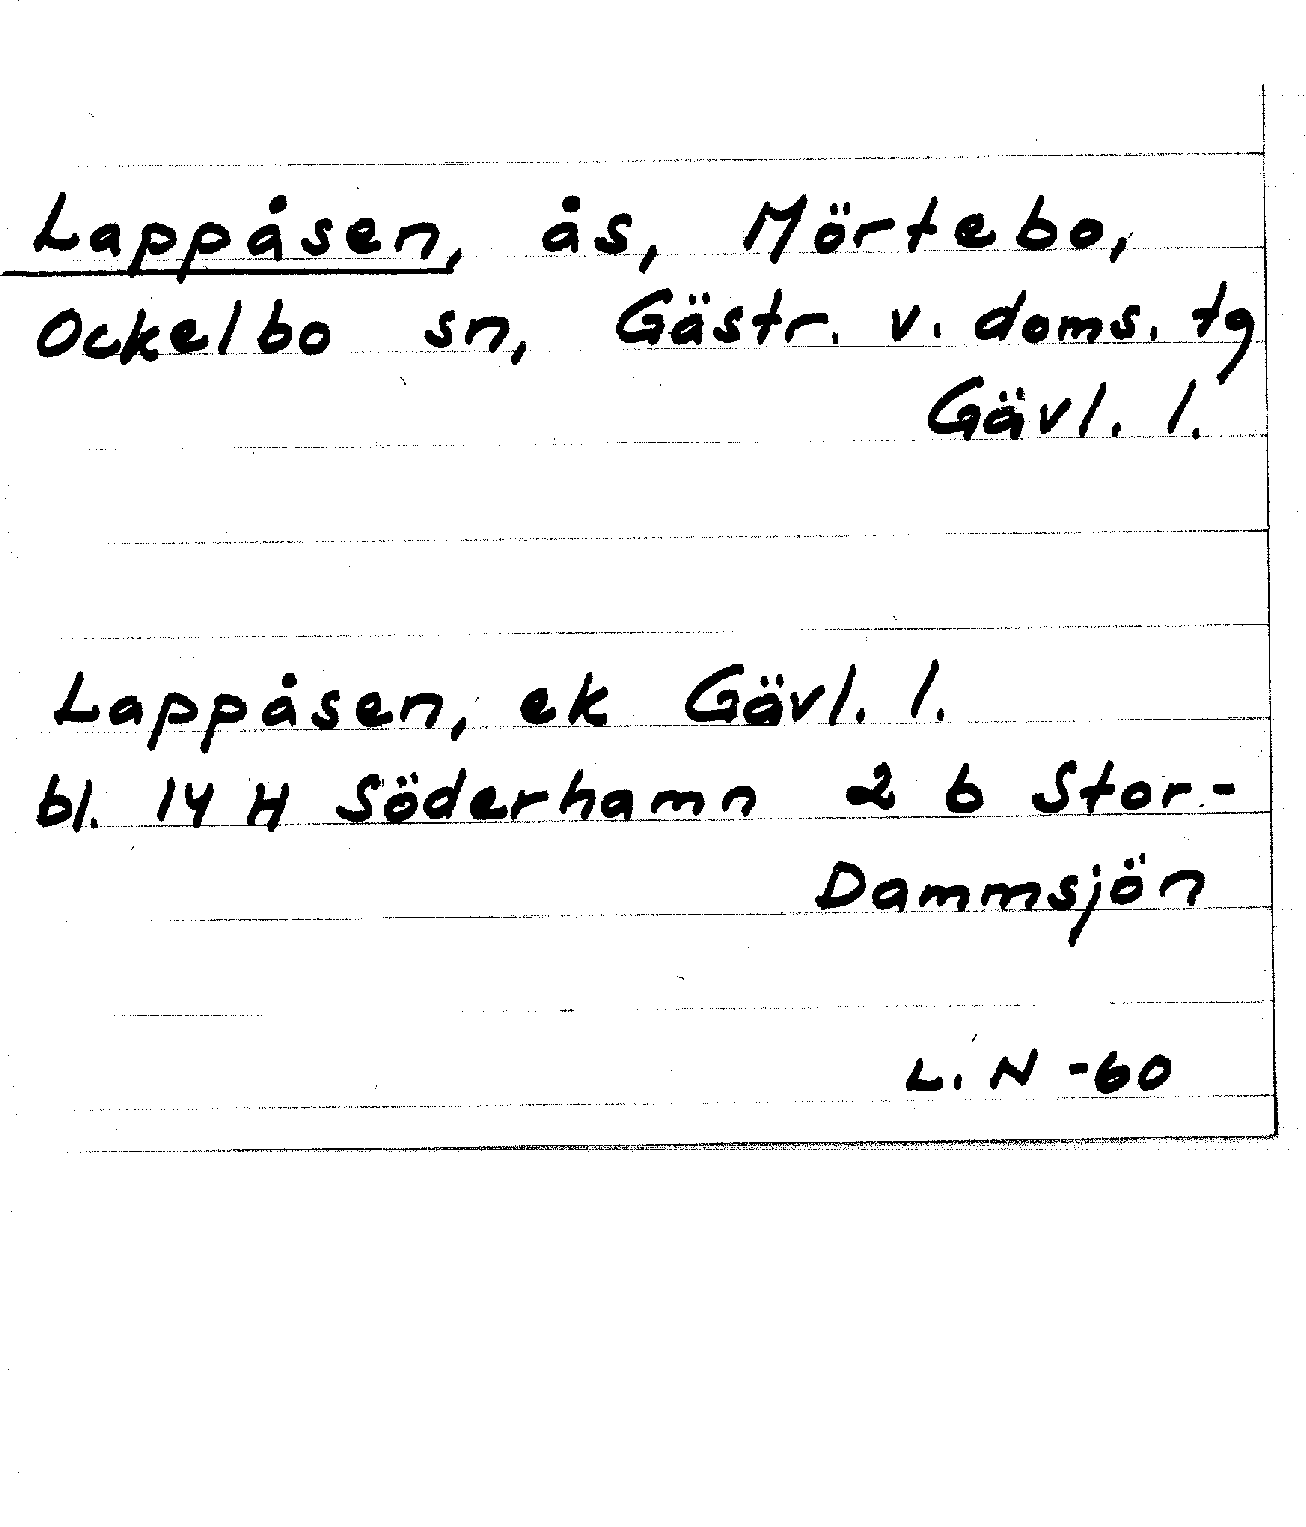 Lappåsen, ås, Mörtebo,
Ockelbo sn, Gästr. v. doms. tg
Gävl. l.
Lappåsen, ek Gävl. l.
bl. 14 H Söderhamn 2 b Stor-
Dammsjön
L. N -60